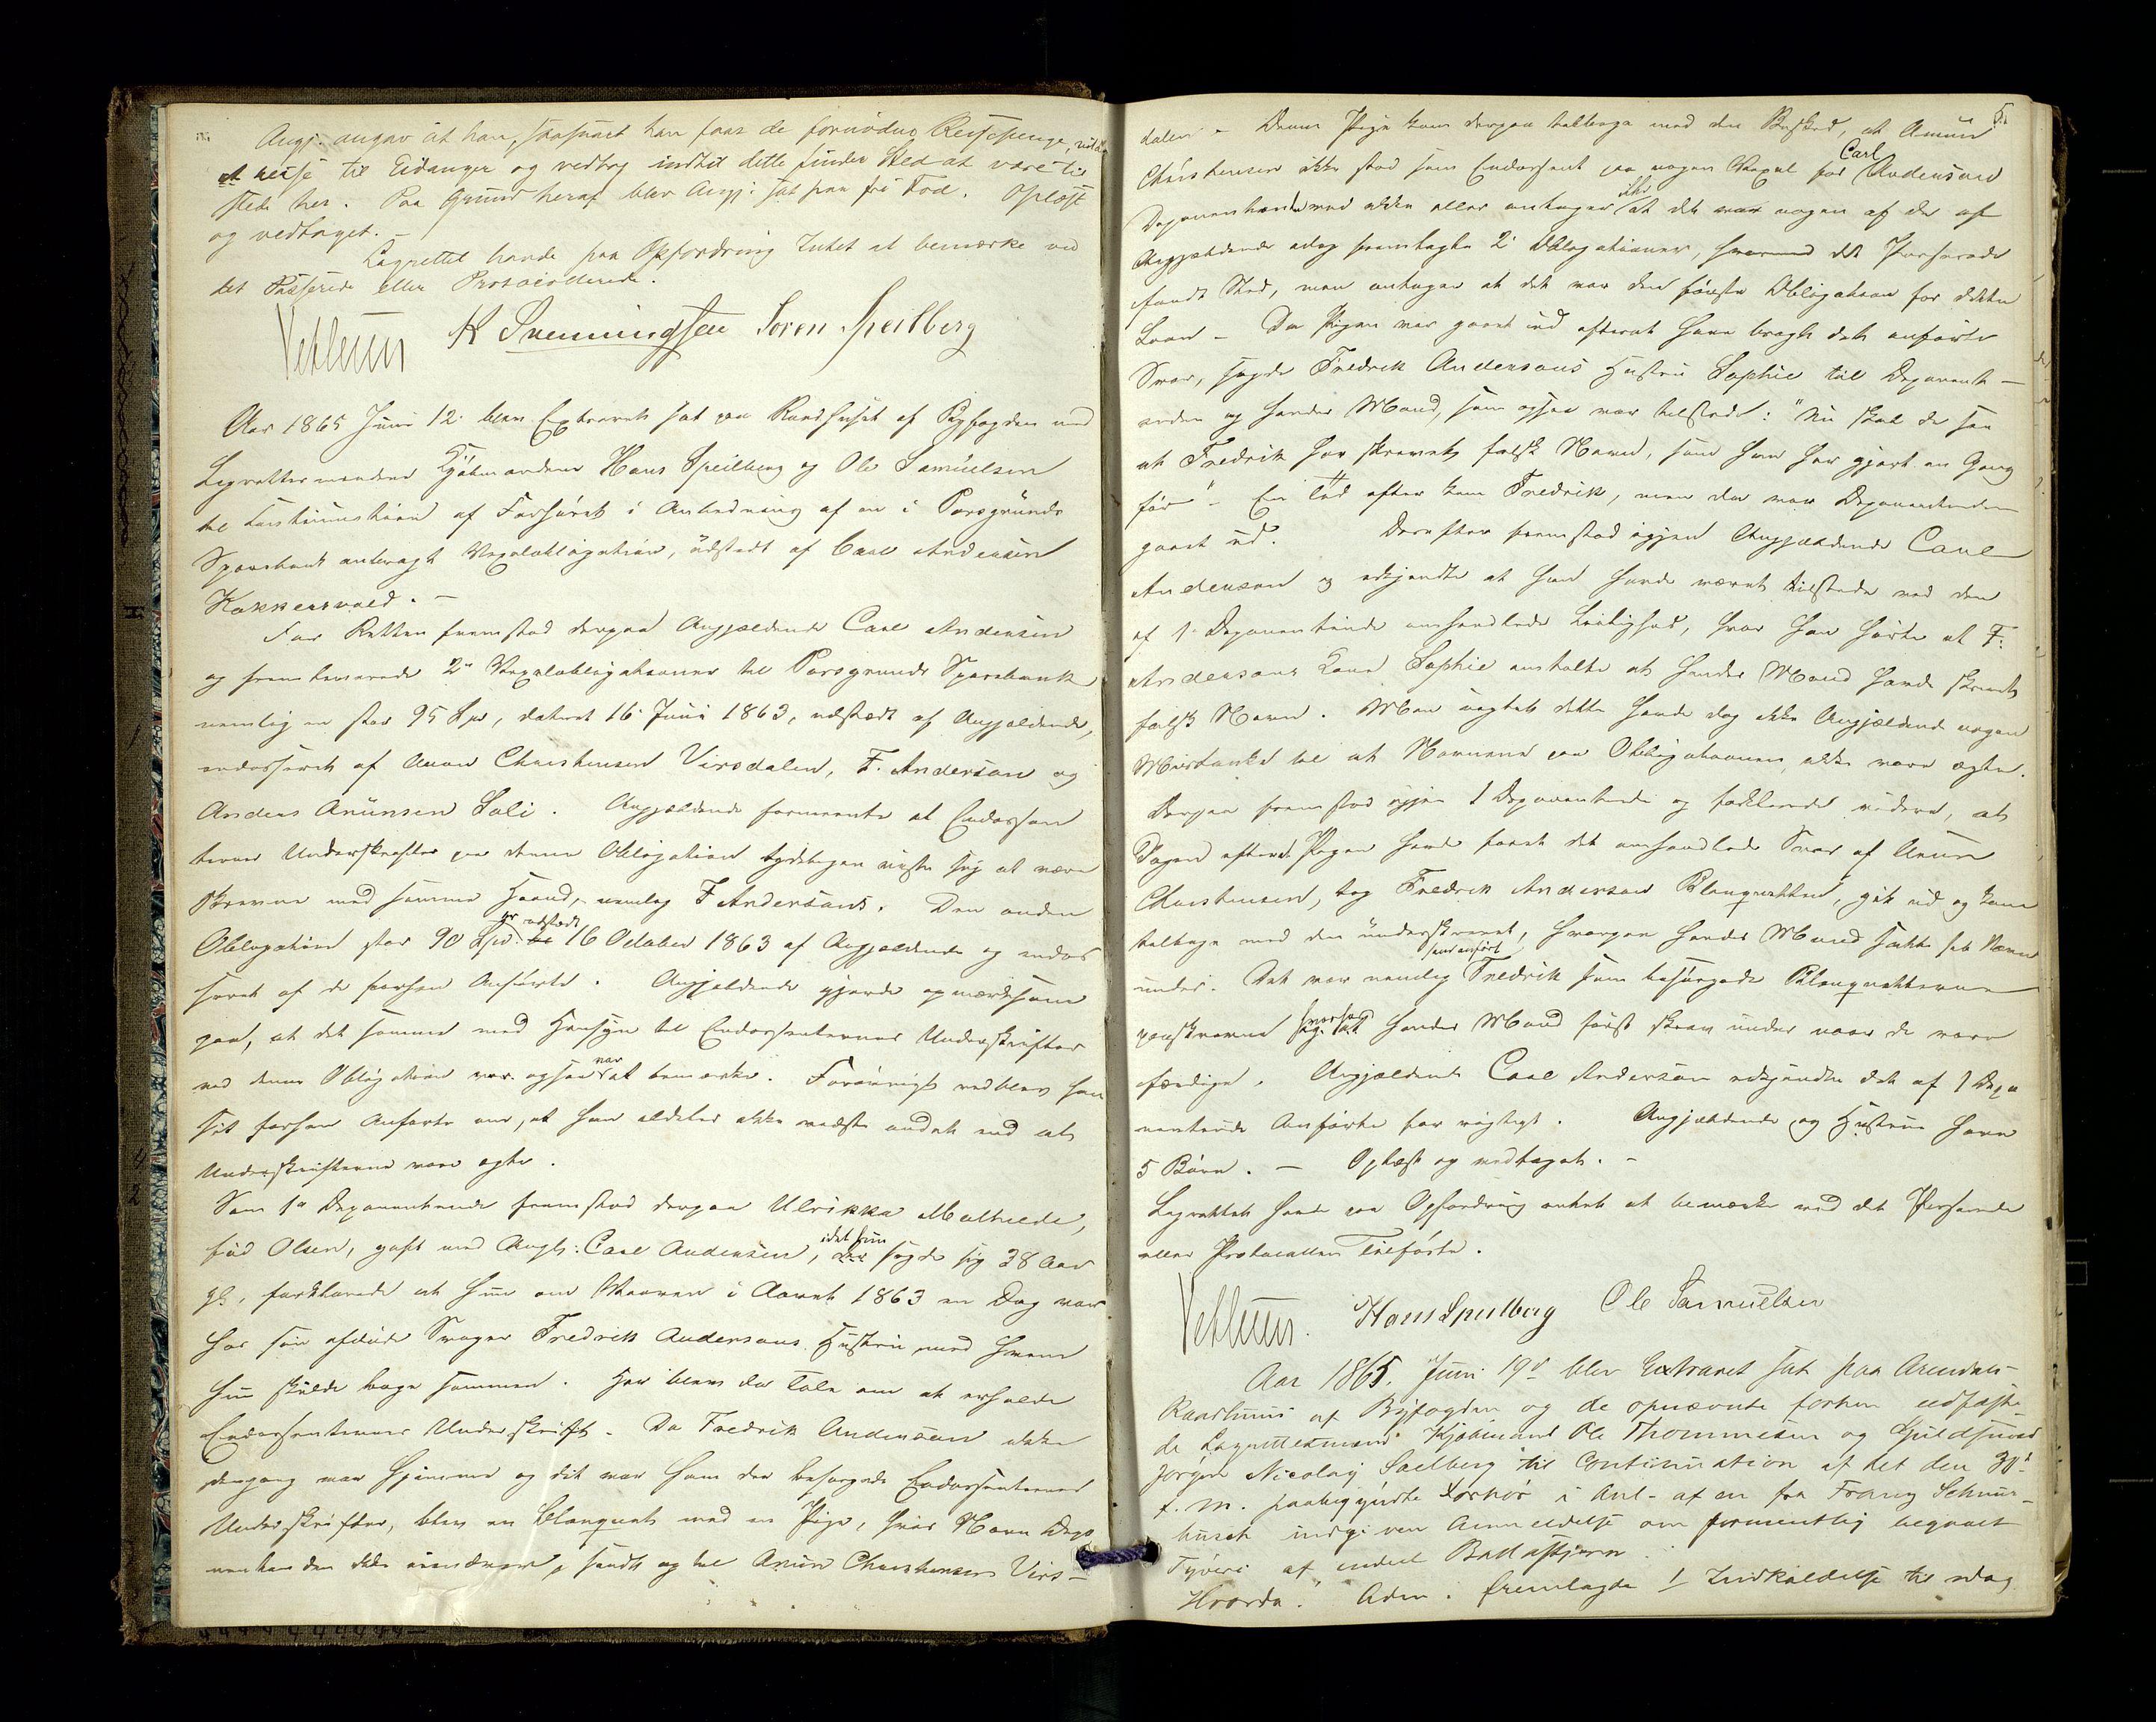 Angj. angav at han, saasnart han faar de fornødne Reisepenge, vilde
at reise til Eidanger og vedtog indtil dette finder Sted at være til
stede her. Paa Grund heraf blev Angj: sat paa fri Fod. Oplæst
og vedtaget. –
Lagrettet havde paa Opfordring Intet at bemærke ved
det Passerede eller Protocollerede.
K Svenningsen Soren Speilberg
Aar 1865 Juni 12. blev Extraret sat paa Raadhuset af Byfogden med
Lagrettesmændene Kjøbmændene Hans Speilberg og Ole Samuelsen
til Continuation af Forhøret i Anledning af en i Porsgrunds
Sparebank anbragt Vexelobligation, udstedt af Carl Andersen
Kokkersvold. –
For Retten fremstod derpaa Angjældende Carl Andersen
og fremleverede 2de Vexelobligationer til Porsgrunds Sparebank
nemlig en stor 95 Spd, dateret 16 Juni 1863, udstædt af Angjældende,
endosseret af Anun Christensen Virsdalen, F. Anderson og
Anders Anunsen Soli. Angjældende formeente at Endossen
ternes Underskrifter paa denne Obligation tydeligen viste sig at være
skrevne med samme Haand, nemlig F Andersons. Den anden
Obligation stor 90 Spd. er udstedt 16 October 1863 af Angjældende og endos
seret af de forhen Anførte. Angjældende gjorde opmærksom
paa, at det samme med Hensyn til Endossenternes Underskrifter
ved denne Obligation var ogsaa var at bemærke. Forøvrigt vedblev han
sit forhen Anførte om, at han aldeles ikke vidste andet end at
Underskrifterne vare ægte.
Som 1ste Deponentinde fremstod derpaa Ulrikka Mathilde,
fød Olsen, gift med Angj: Carl Andersen, idet hun sagde sig 38 Aar
gl., forklarede at hun om Vaaren i Aaret 1863 en Dag var
hos sin afdøde Svoger Fredrik Andersons Hustru med hvem
hun skulde bage sammen. Her blev da Tale om at erholde
Endossenternes Underskrift. Da Fredrik Anderson ikke
dengang var hjemme og det var ham der besørgede Endossenternes
Underskrifter, blev en Blanquet med en Pige, hvis Navn Depo
nentinden ikke erindrer, sendt op til Anun Christensen Virs–
5.
dalen – Denne Pige kom derpaa tilbage med den Besked, at Anun
Christensen ikke stod som Endossent paa nogen Vexel for Carl Anderson
Deponentinden ved ikke eller antager ikke at det var nogen af de af
Angjældende idag fremlagte 2de Obligationer, hvormed det Passerede
fandt Sted, men antager at det var den første Obligation for dette
Laan – Da Pigen var gaaet ud efterat have bragt det anførte
Svar, sagde Fredrik Andersons Hustru Sophie til Deponent–
inden og hendes Mand, som ogsaa var tilstede: "Nu skal de see
at Fredrik har skrevet falsk Navn, som han har gjort en Gang
før" – En Tid efter kom Fredrik, men da var Deponentinden
gaaet ud. Derefter fremstod igjen Angjældende Carl
Anderson og vedkjendte at han havde været tilstede ved den
af 1 Deponentinde omhandlede Leilighed, hvor han hørte at F.
Andersons Kone Sophie omtalte at hendes Mand havde skrevet
falsk Navn. Men uagtet dette havde dog ikke Angjældende nogen
Mistanke til at Navnene paa Obligationen ikke vare ægte.
Derpaa fremstod igjen 1 Deponentinde og forklarede videre, at
Dagen efterat Pigen havde faaet det omhandlede Svar af Anun
Christensen, tog Fredrik Anderson Blanquetten, gik ud og kom
tilbage med den underskrevet, hvorpaa hendes Mand satte sit Navn
under. Det var nemlig som anført Fredrik som besørgede Blanquetterne
paaskrevne hvorpaa hendes Mand først skrev under naar de vare
færdige. Angjældende Carl Anderson vedkjendte det af 1 Depo
nentinde Anførte for rigtigt. Angjældende og Hustru have
5 Børn. – Oplæst og vedtaget. –
Lagrettet havde paa Opfordring intet at bemærke ved det Passerede
eller Protocollen Tilførte.
Hans Speilberg Ole Samuelsen
Aar 1865. Juni 19d blev Extraret sat paa Arendals
Raadhuus af Byfogden og de opnævnte forhen edfæste
de Lagrettesmænd Kjøbmand Ole Thommesen og Guldsmed
Jørgen Nicolay Soelberg til Continuation af det den 30d
f. M. paabegyndte Forhør i Anl. af en fra Franz Schnur–
busch indgiven Anmeldelse om formentlig begaaet
Tyveri af endeel Ballastjern.
Hvorda: Adm. fremlagde 1/ Indkaldelse til idag